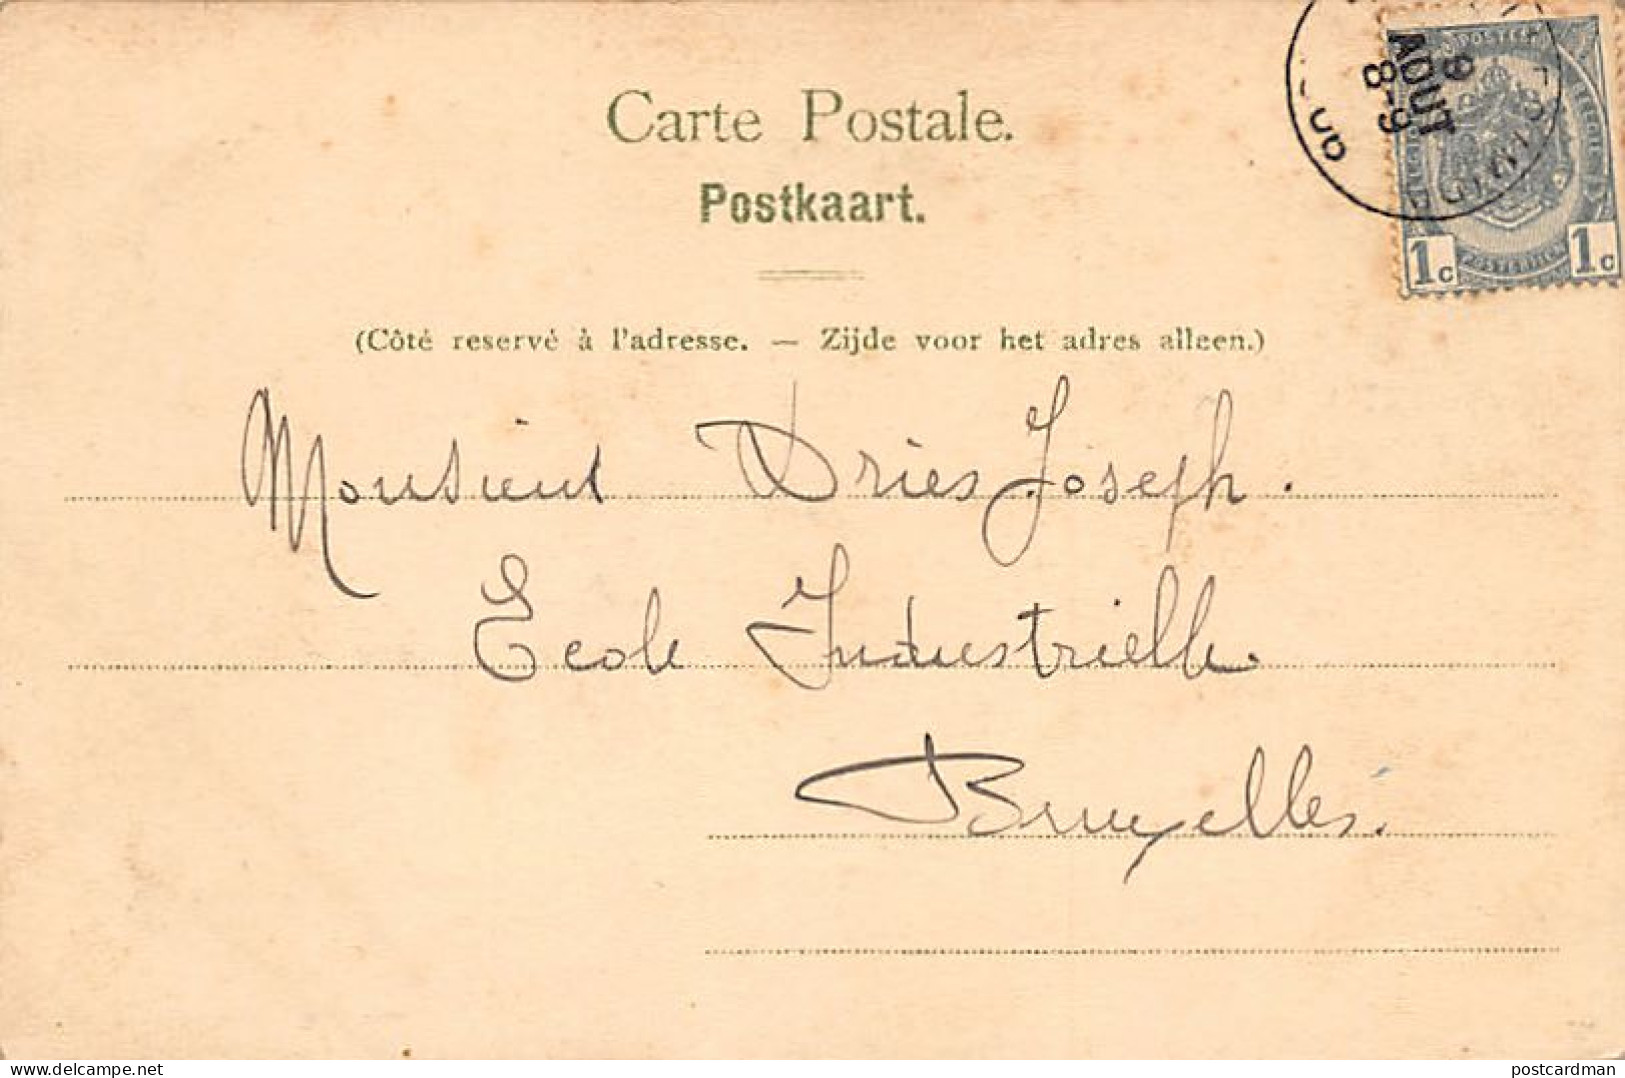 Carte Postale.
Postkaart.
(Côté reservé à l'adresse. — Zijde voor het adres alleen.)
9
AOUT
8-9
POSTE
BELGIE
1c 1c
Monsieur Dries Joseph.
Ecole Industrielle
Bruxelles.
delcampe.net
postcardman